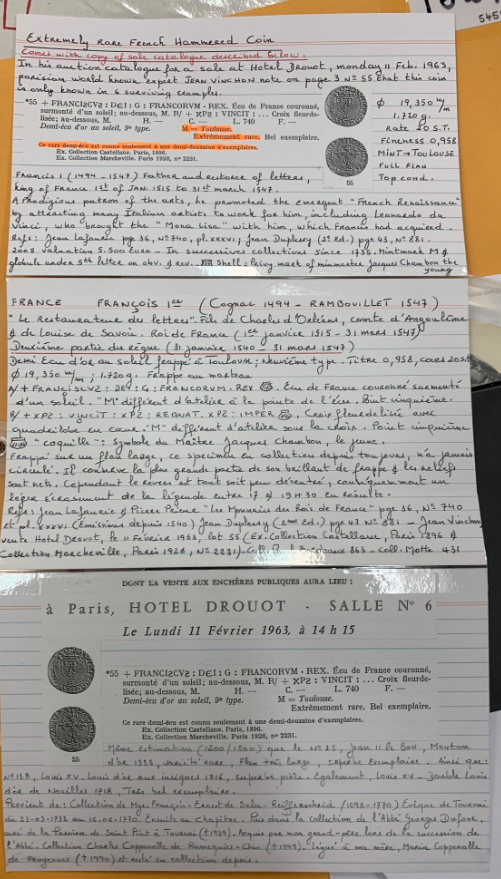 Extremely Rare French Hammered Coin
Comes with copy of sale catalogue described below.
In his auction catalogue for a sale at Hotel Drouot, monday 11 Feb. 1963,
parisian world known expert JEAN VINCHON note on page 3 Nº 55 that this coin
is only known in 6 surviving examples.
*55 + FRANCIƧCVƧ : DЄI : G : FRANCORVM · REX. Écu de France couronné,
surmonté d'un soleil; au-dessous, M. R/ + XPƧ : VINCIT : ... Croix fleurde-
lisée; au-dessous, M. H. — C. — L. 740 F. —
Demi-écu d'or au soleil, 9e type. M = Toulouse.
Extrêmement rare. Bel exemplaire.
Ce rare demi-écu est connu seulement à une demi-douzaine d'exemplaires.
Ex. Collection Castellane, Paris, 1896.
Ex. Collection Marcheville. Paris 1928, nº 2231.
55
Ø 19,350 m/m
1.720 g.
Rate 20 S.T.
Fineness 0,958
MINT → TOULOUSE
Full Flan
Top cond.
Francis I (1494 – 1547) Father and restorer of letters,
king of France 1st of Jan. 1515 to 31st march 1547.
A Prodigious patron of the arts, he promoted the emergent "French Renaissance"
by attracting many Italian artists to work for him, including Leonardo da
Vinci, who brought the "Mona Lisa" with him, which Francis had acquired.
Refs: Jean Lafaurie pge 36, Nº 740, pl. XXXVI; Jean Duplessy (2e Ed.) pge 43, Nº 881.
2008 valuation 5.500 euro – In successive collections since 1755. Mintmark M &
globule under 5th letter on obv. & rev. Shell: Privy mark of mintmaster Jacques Chambon the
young
FRANCE FRANÇOIS 1er (Cognac 1494 – RAMBOUILLET 1547)
"Le Restaurateur des lettres". Fils de Charles d'Orléans, comte d'Angoulême
& de Louise de Savoie. Roi de France (1er janvier 1515 – 31 mars 1547)
Deuxième partie du règne (31 janvier 1540 – 31 mars 1547)
Demi Ecu d'or au soleil frappé à Toulouse; Neuvième type. Titre 0,958, cours
Ø 19,350 m/m; 1.720 g. Frappe au marteau
A/ + FRANCISCVS : DEI : G : FRANCORVM. REX. Ecu de France couronné surmonté
d'un soleil. "M" différent d'atelier à la pointe de l'écu. Point cinquième.
R/ + XPS : VINCIT : XPS : REGNAT. XPS : IMPER. Croix fleurdelisée avec
quadrilobe en cœur. "M" différent d'atelier sous la croix. Point cinquième
"coquille": symbole du Maître Jacques Chambon, le jeune.
Frappé sur un flan large, ce spécimen en collection depuis toujours, n'a jamais
circulé. Il conserve la plus grande partie de son brillant de frappe & les reliefs
sont nets. Cependant le revers est tout soit peu décentré, conséquemment un
léger écrasement de la légende entre 17 & 19H30 en résulte.
Refs: Jean Lafaurie & Pierre Prieur "Les Monnaies des Rois de France" pge 36, Nº 740
et pl. XXXVI (Emissions depuis 1540) Jean Duplessy (2me Ed.) pge 43 Nº 881 – Jean Vinchon
vente Hotel Drouot, le 11 Février 1963, lot 55 (Ex. Collection Castellane, Paris 1896 &
Collection Marcheville, Paris 1928, Nº 2231) – Coll. 863 – Coll. Motte 431
DONT LA VENTE AUX ENCHÈRES PUBLIQUES AURA LIEU :
à Paris, HOTEL DROUOT - SALLE Nº 6
Le Lundi 11 Février 1963, à 14 h 15
*55 + FRANCIƧCVƧ : DЄI : G : FRANCORVM · REX. Écu de France couronné,
surmonté d'un soleil; au-dessous, M. R/ + XPƧ : VINCIT : ... Croix fleurde-
lisée; au-dessous, M. H. — C. — L. 740 F. —
Demi-écu d'or au soleil, 9e type. M = Toulouse.
Extrêmement rare. Bel exemplaire.
Ce rare demi-écu est connu seulement à une demi-douzaine d'exemplaires.
Ex. Collection Castellane, Paris, 1896.
Ex. Collection Marcheville. Paris 1928, nº 2231.
55
Même estimation (1200/1500) que le Nº 25, Jean II le Bon, Mouton
d'or 1355, variété rare, Flan très large, superbe exemplaire. Ainsi que:
Nº 128, Louis XV. Louis d'or aux insignes 1716, superbe pièce. Egalement, Louis XV – Double Louis
d'or de Noailles 1718, Très bel exemplaire.
Provient de: Collection de Mgr. François-Ernest de Salm-Reifferscheid (1698–1770) Evêque de Tournai
du 23-03-1732 au 16-06-1770. Ensuite au Chapitre. Puis dans la Collection de l'Abbé Georges Dufour,
curé de la Paroisse de Saint Piat à Tournai († 1939). Acquis par mon grand-père lors de la succession de
l'Abbé. Collection Charles Coppenolle de Ramegnies-Chin († 1949). Légué à ma mère, Maria Coppenolle
de († 1990) et resté en collection depuis.